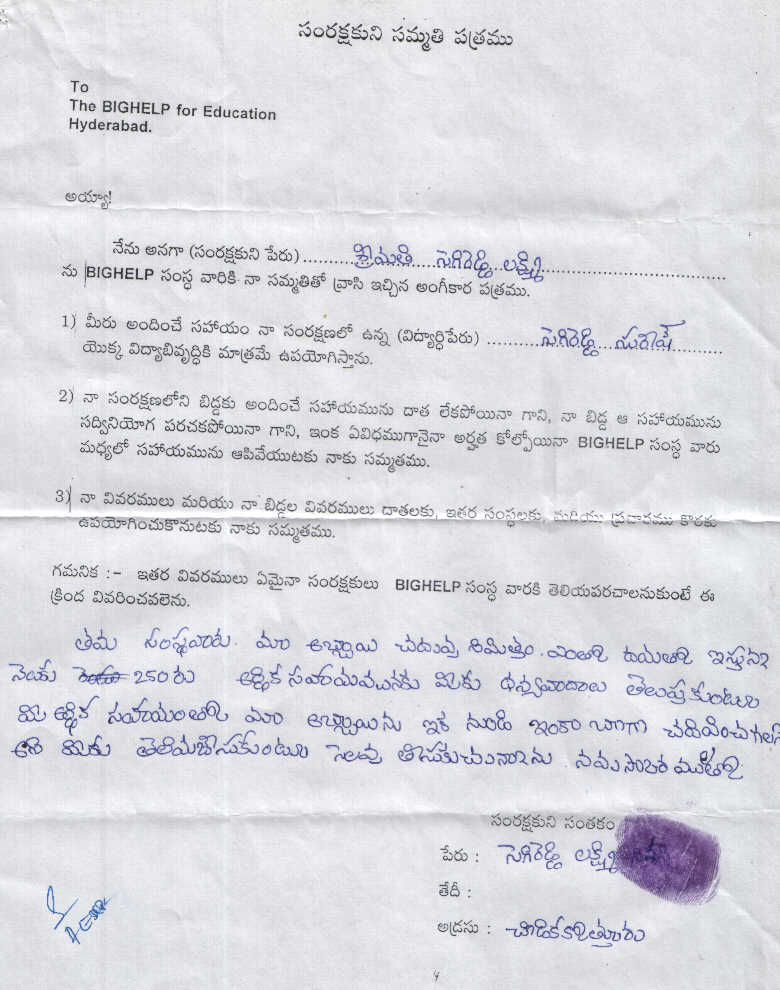 సంరక్షకుని సమ్మతి పత్రము
To
The BIGHELP for Education
Hyderabad.
అయ్యా!
నేను అనగా (సంరక్షకుని పేరు) శ్రీమతి సెగిరెడ్డి లక్ష్మి
ను BIGHELP సంస్థ వారికి నా సమ్మతితో వ్రాసి ఇచ్చిన అంగీకార పత్రము.
1) మీరు అందించే సహాయం నా సంరక్షణలో ఉన్న (విద్యార్ధిపేరు) సెగిరెడ్డి సురేష్
యొక్క విద్యాభివృద్ధికి మాత్రమే ఉపయోగిస్తాను.
2) నా సంరక్షణలోని బిడ్డకు అందించే సహాయమును దాత లేకపోయినా గాని, నా బిడ్డ ఆ సహాయమును
సద్వినియోగ పరచకపోయినా గాని, ఇంక ఏవిధముగానైనా అర్హత కోల్పోయినా BIGHELP సంస్థ వారు
మధ్యలో సహాయమును ఆపివేయుటకు నాకు సమ్మతము.
3) నా వివరములు మరియు నా బిడ్డల వివరములు దాతలకు, ఇతర సంస్థలకు, మరియు ప్రచారము కొరకు
ఉపయోగించుకొనుటకు నాకు సమ్మతము.
గమనిక :- ఇతర వివరములు ఏమైనా సంరక్షకులు BIGHELP సంస్థ వారకి తెలియపరచాలనుకుంటే ఈ
క్రింద వివరించవలెను.
తమ సంస్థవారు. మా అబ్బాయి చదువు నిమిత్తం. ఎంతో దయతో ఇస్తున్న
250రు ఆర్థిక మీకు ధన్యవాదాలు తెలుపుకుంటూ
మీ ఆర్థిక సహాయంతో మా అబ్బాయిను ఇక నుండి ఇంకా బాగా
అని మీకు తెలియజేసుకుంటూ సెలవు తీసుకుచున్నాను.
సంరక్షకుని సంతకం
పేరు : సెగిరెడ్డి లక్ష్మి
తేదీ :
అడ్రసు : చూడికొత్తూరు
4